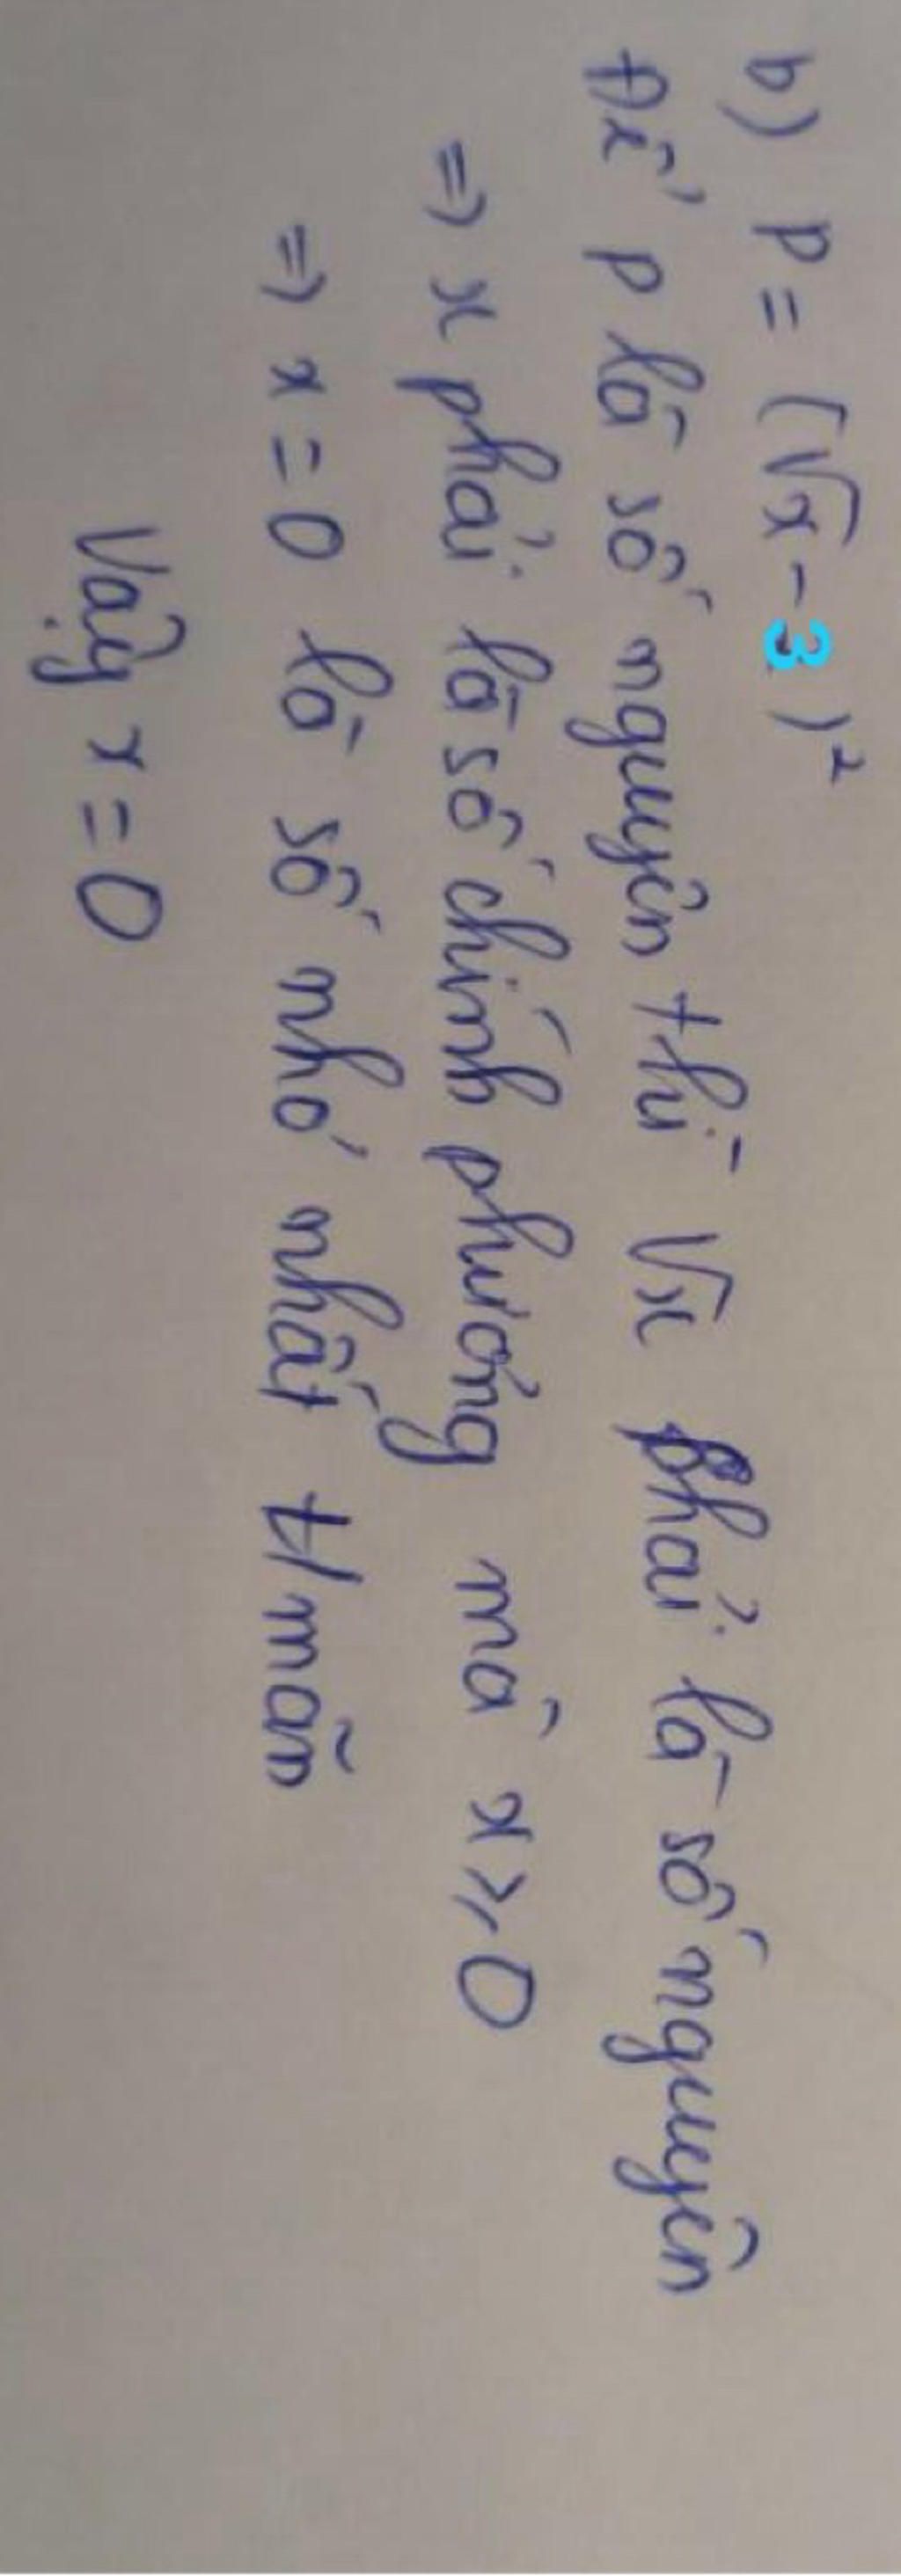 b) P = (√x - 3)²
Để P là số nguyên thì √x phải là số nguyên
=> x phải là số chính phương mà x ⩾ 0
=> x = 0 là số nhỏ nhất t/mãn
Vậy x = 0